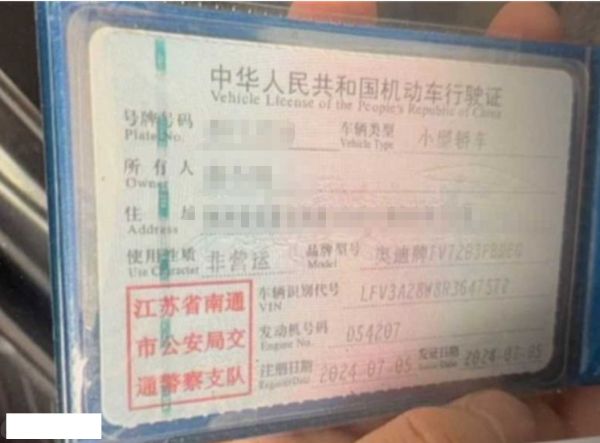 中华人民共和国机动车行驶证
Vehicle License of the People's Republic of China
号牌号码 车辆类型 小型轿车
Plate No. Vehicle Type
所有人
Owner
住址
Address
使用性质 非营运 品牌型号 奥迪牌
Use Character Model
江苏省南通
市公安局交
通警察支队
车辆识别代号 LFV3A28W8R3647572
VIN
发动机号码 054207
Engine No.
注册日期 2024-07-05 发证日期 2024-07-05
Register Date Issue Date